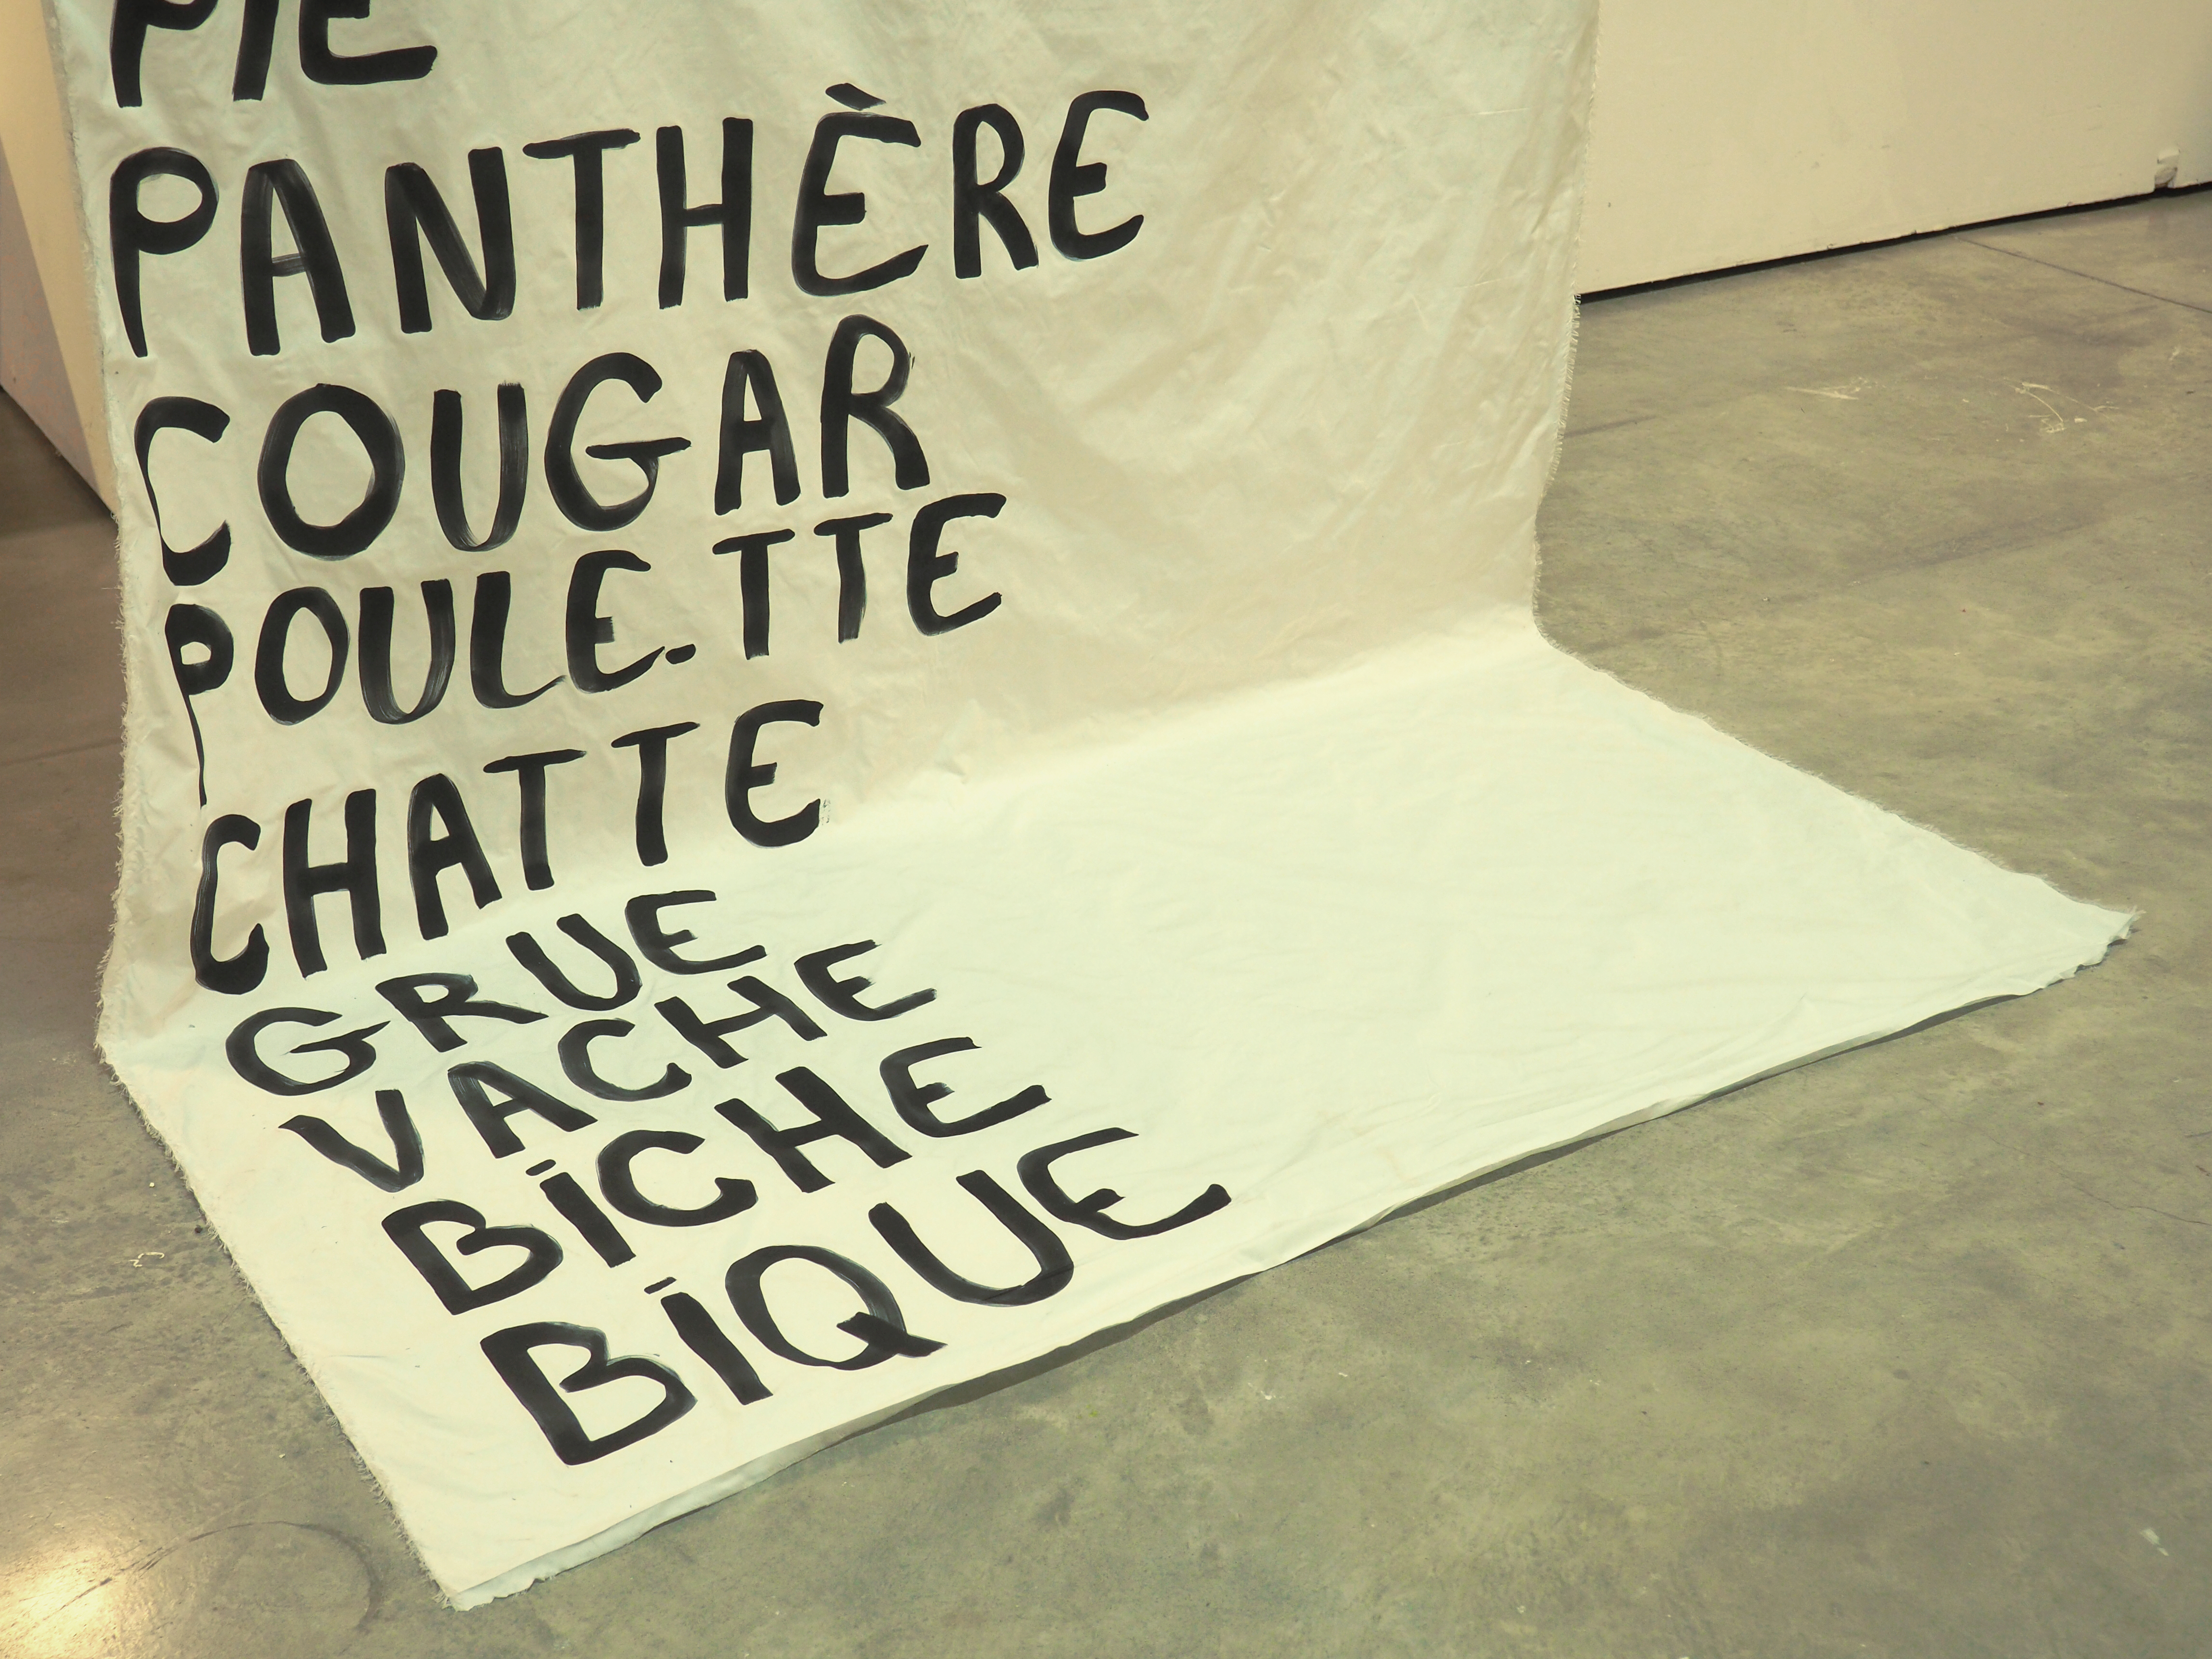 PIE
PANTHÈRE
COUGAR
POULE.TTE
CHATTE
GRUE
VACHE
BICHE
BIQUE